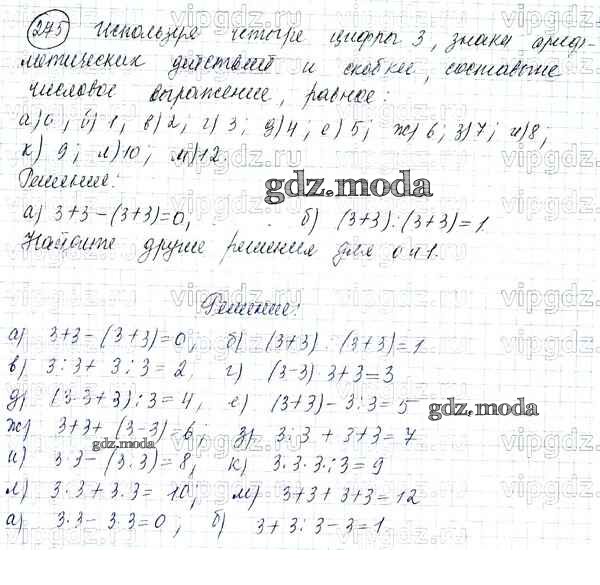 275 Используя четыре цифры 3, знаки ариф-
метических действий и скобки, составьте
числовое выражение, равное:
а) 0; б) 1; в) 2; г) 3; д) 4; е) 5; ж) 6; з) 7; и) 8;
к) 9; л) 10; м) 12.
Решение:
gdz.moda
а) 3+3-(3+3)=0, б) (3+3):(3+3)=1.
Найдите другие решения для 0 и 1.
Решение:
а) 3+3-(3+3)=0; б) (3+3):(3+3)=1
в) 3:3+3:3=2, г) (3-3)·3+3=3
д) (3·3+3):3=4, е) (3+3)-3:3=5
gdz.moda
ж) 3+3+(3-3)=6; з) 3:3+3+3=7
gdz.moda
и) 3·3-(3:3)=8, к) 3·3·3:3=9
л) 3·3+3:3=10, м) 3+3+3+3=12
а) 3·3-3·3=0, б) 3+3:3-3=1